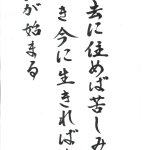 去に住めば苦しみ
き今に生きれば
が始まる